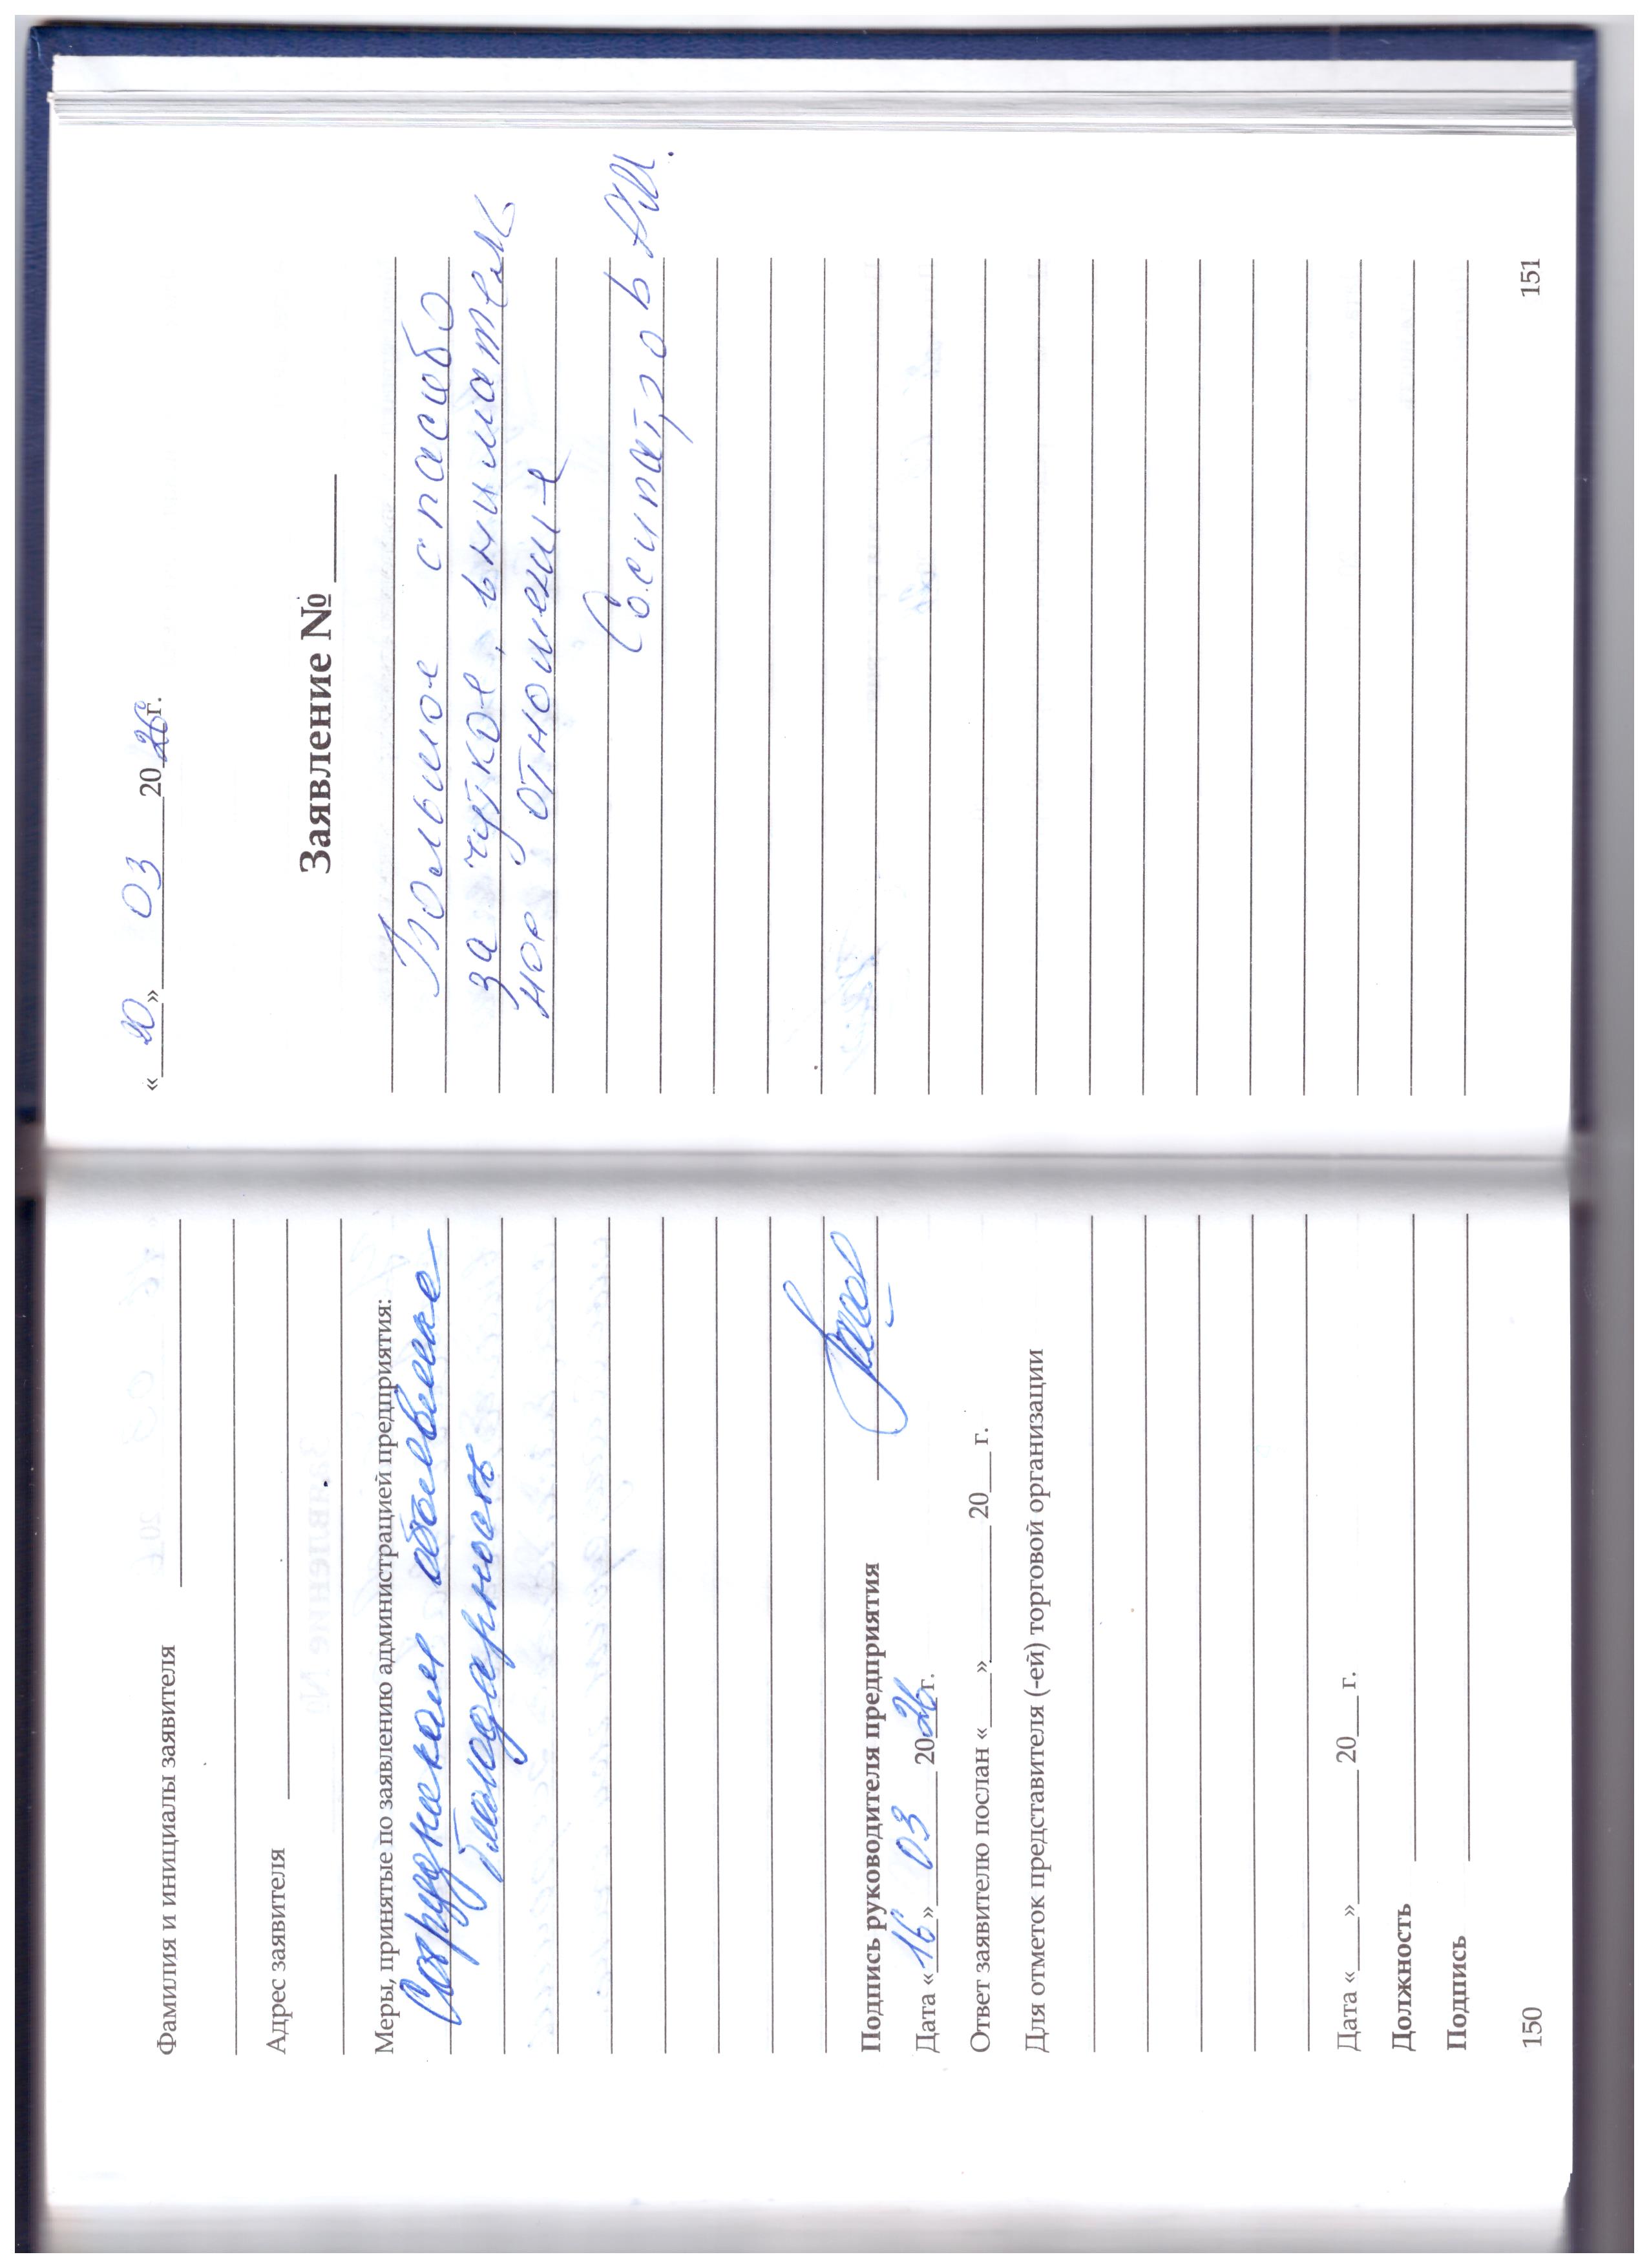 Фамилия и инициалы заявителя
Адрес заявителя
Меры, принятые по заявлению администрацией предприятия:
Сотрудникам объявлена
благодарность
Подпись руководителя предприятия
Дата «16» 03 2026г.
Ответ заявителю послан «___» ______ 20___ г.
Для отметок представителя (-ей) торговой организации
Дата «___» ______ 20___ г.
Должность
Подпись
150
«20» 03 2026г.
Заявление № ____
Большое спасибо
за чуткое, вниматель
ное отношение
151